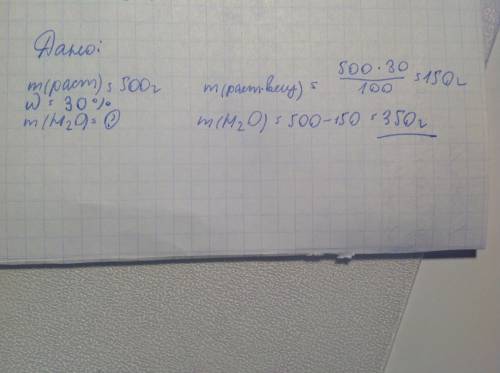 Дано:
m(раст) = 500г
m(раст.веш) = 500 · 30 / 100 = 150г
ω = 30%
m(H₂O) = ?
m(H₂O) = 500 - 150 = 350г